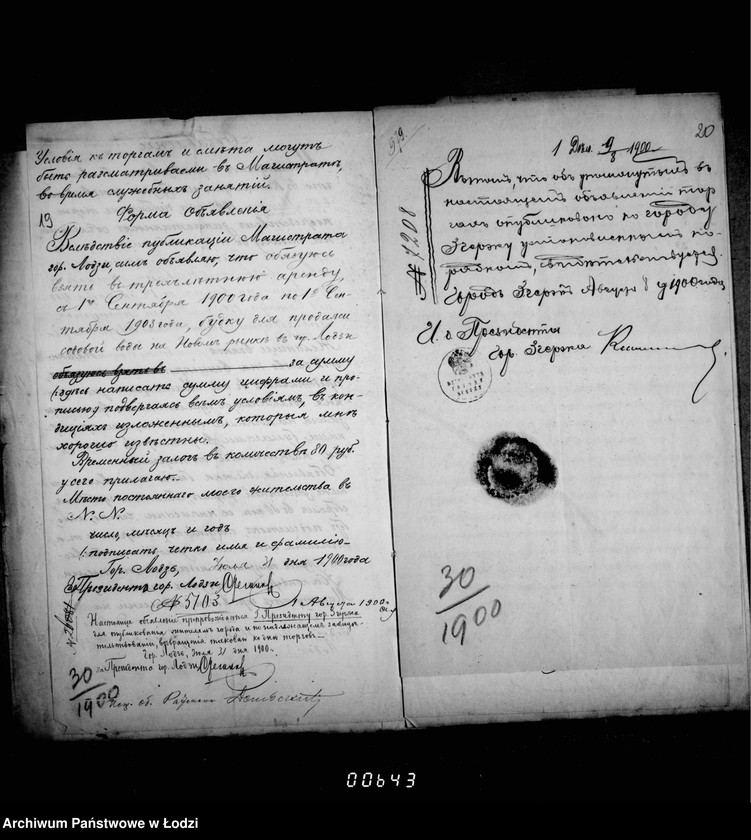 Условія къ торгамъ и смѣта могутъ
быть разсматриваемы въ Магистратѣ,
во время служебныхъ занятій.
19
Форма Объявленія
Вслѣдствіе публикаціи Магистрата
гор. Лодзи, симъ объявляю, что обязуюсь
взять въ трехлѣтнюю аренду,
съ 1го Сентября 1900 года по 1е Сен-
тября 1903 года, будку для продажи
содовой воды на Новомъ рынкѣ въ гор. Лодзи
обязуюсь взять въ за сумму
(здѣсь написать сумму цифрами и про-
писью) подвергаясь всѣмъ условіямъ, въ кон-
диціяхъ изложеннымъ, которыя мнѣ
хорошо извѣстны.
Временный залогъ въ количествѣ 80 руб.
у сего прилагаю.
Мѣсто постояннаго моего жительства въ
N. N.
число, мѣсяцъ и годъ
(: подписать четко имя и фамилію
Гор. Лодзь, Іюля 21 дня 1900 года
Президентъ гор. Лодзи
№ 5103
1 Августа 1900 г.
Настоящее объявленіе препровождается Г. Президенту гор. Згержа
для опубликованія жителямъ города и
возвращенія таковаго ко дню торговъ.
Гор. Лодзь, Іюля 21 дня 1900 г.
Президентъ гор. Лодзи
30
1900
20
1900
№ 7208
что объ упомянутыхъ въ
настоящемъ объявленіи тор-
гахъ опубликовано по городу
Згержу установленнымъ по-
рядкомъ, свидѣтельствуется.
Городъ Згержъ Августа 8 д. 1900 года
И. о Президента
гор. Згержа
30
1900
00643
Archiwum Państwowe w Łodzi